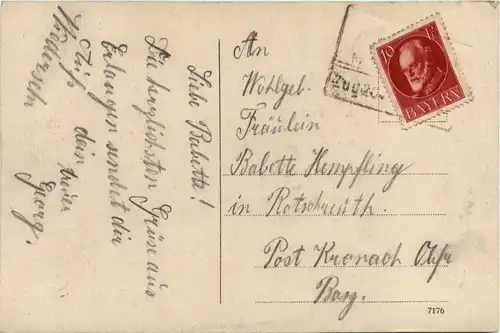 Liebe Babette!
Die herzlichsten Grüse aus
Erlangen sendet dir
dein treuer
Georg.
Auf
Wiedersehn
An
Wohlgeb.
Fräulein
Babette Hempfling
in Rotschreuth.
Post Kronach Obfr
Bayg.
10 Pf
BAYERN
7176